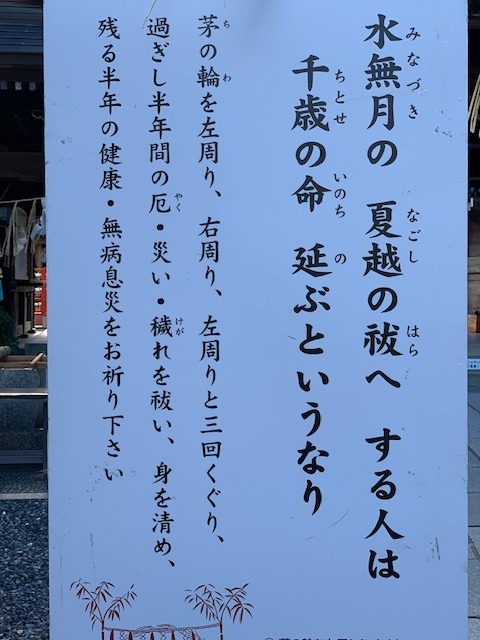 水無月の 夏越の祓へ する人は
千歳の命 延ぶというなり
茅の輪を左周り、右周り、左周りと三回くぐり、
過ぎし半年間の厄・災い・穢れを祓い、身を清め、
残る半年の健康・無病息災をお祈り下さい